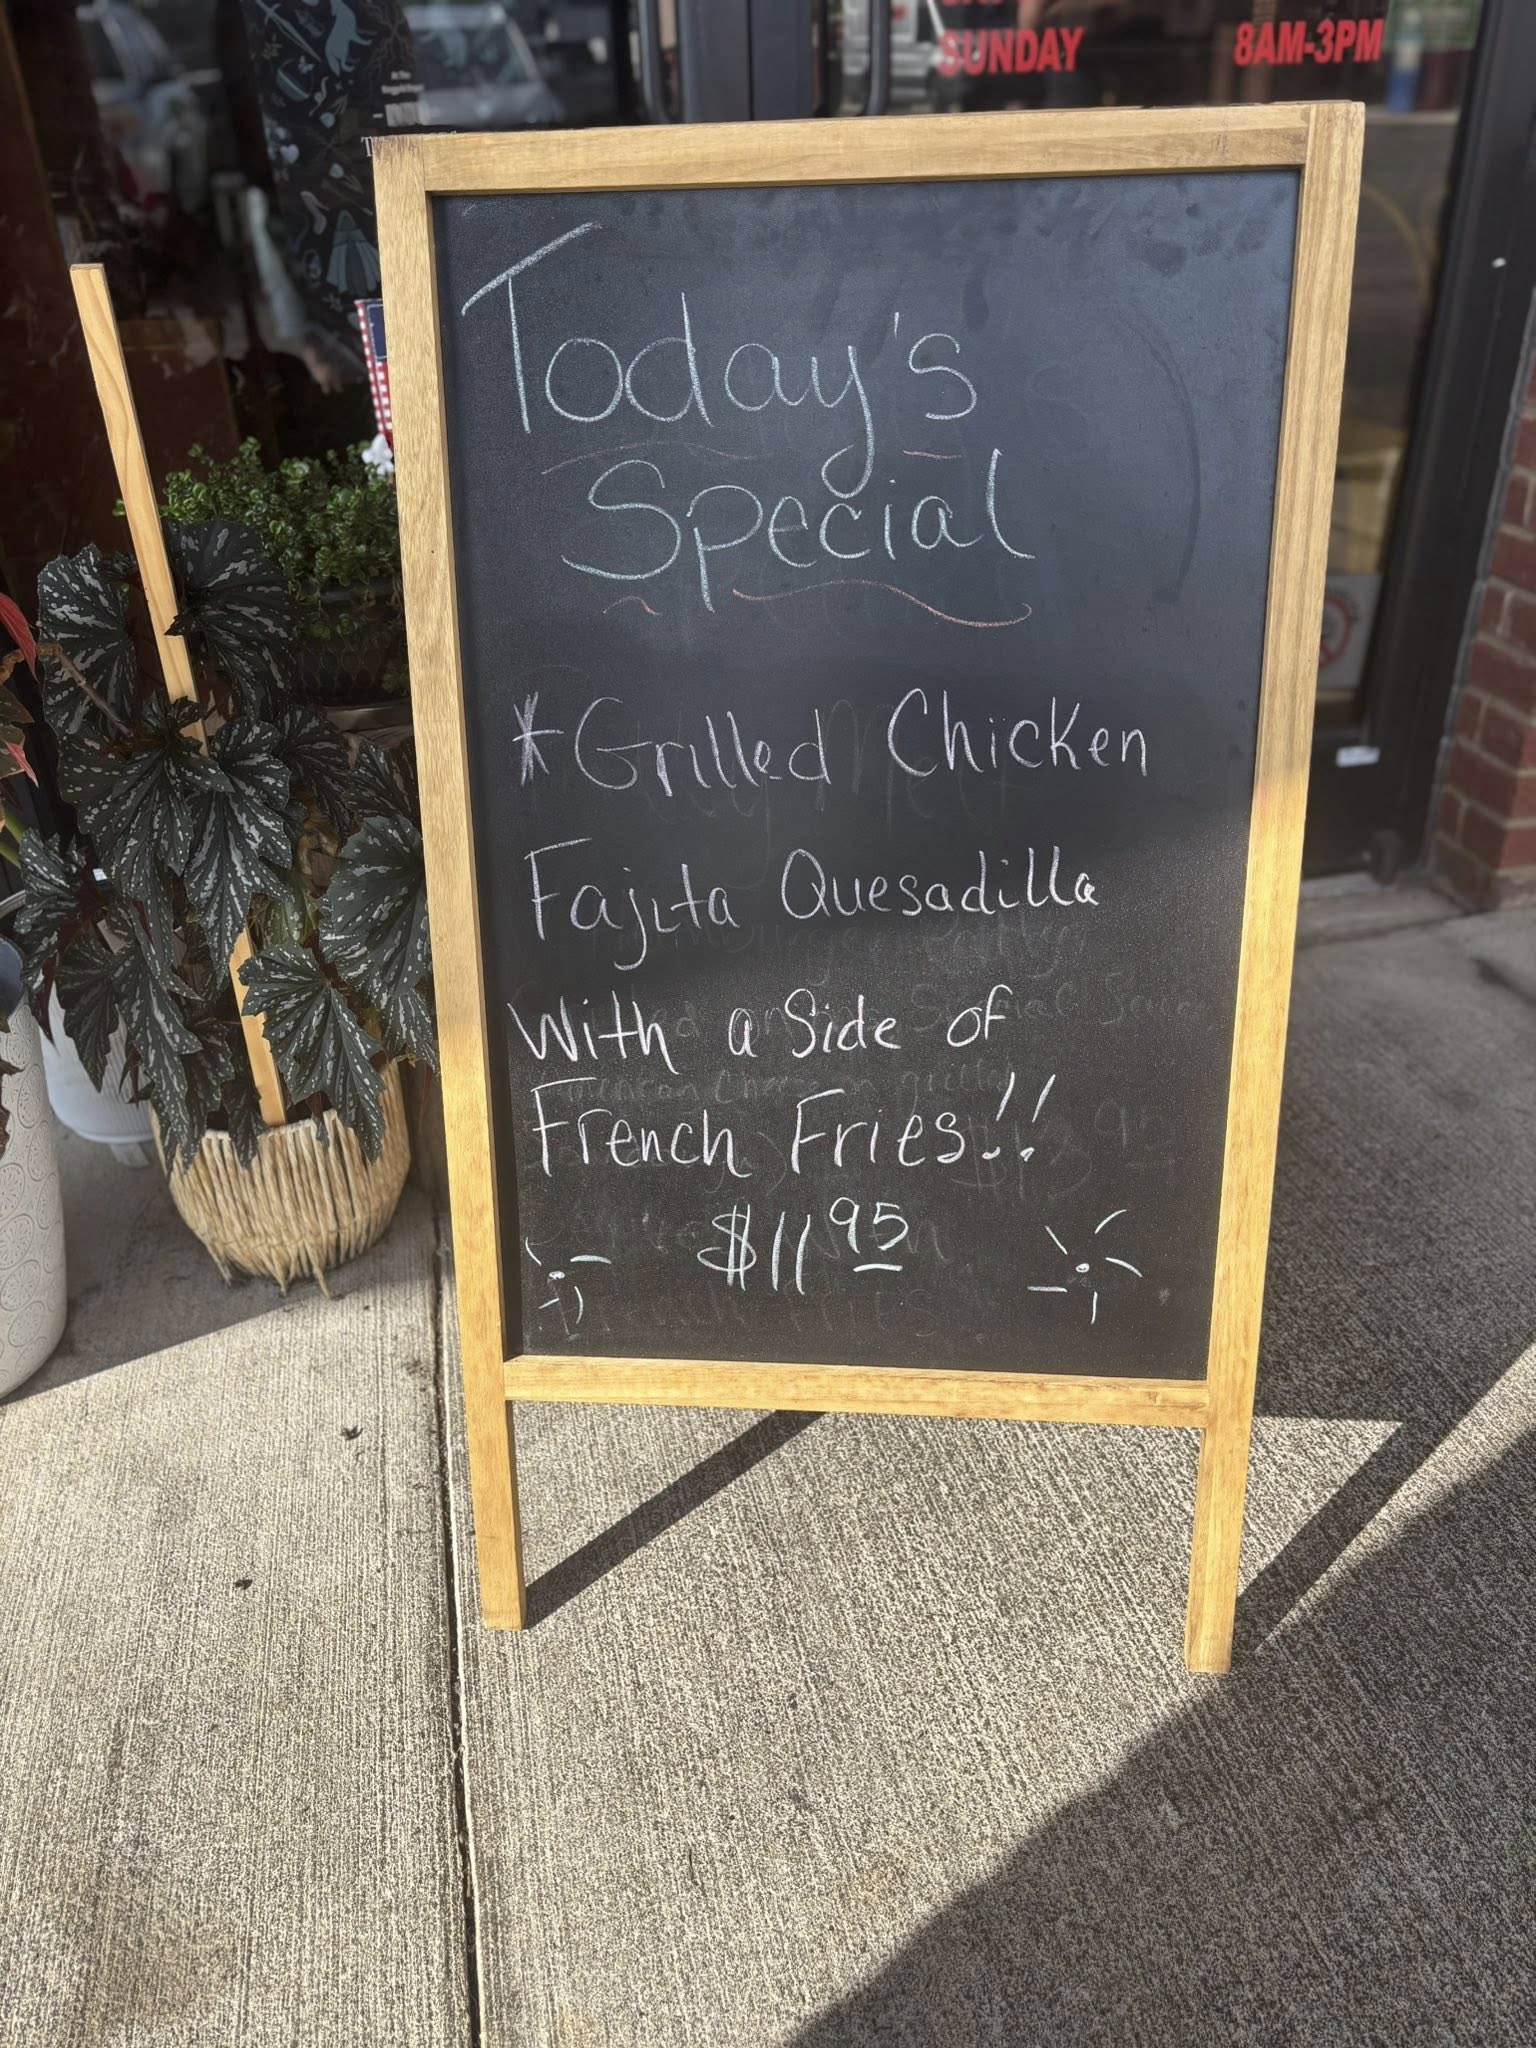 SUNDAY 8AM-3PM
Today's
Special
*Grilled Chicken
Fajita Quesadilla
With a Side of
French Fries!!
$11 95